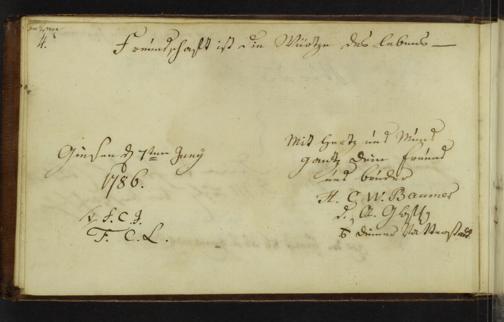 4.
Freündschafft ist die Würtze des lebens
Giesen d 7ten Juny
1786.
Mit Hertz und Mund
gantz dein freund
und brüder
H. C. W. Baumer
d.
V. F. C. J.
T. C. L.